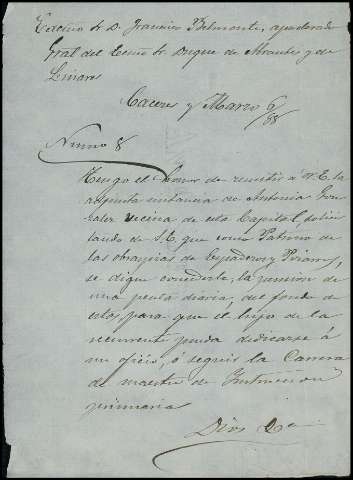 Excmo Sr. D. Francisco Belmonte, apoderado
Gral del Excmo Sr. Duque de Abrantes y de
Linares
Caceres y Marzo 6/68
Numo 8
Tengo el honor de remitir á V.E. la
adjunta instancia de Antonia Gon
zalez vecina de esta Capital, solici
tando de S.E. que como Patrono de
las obras pias de
se digne concederle, la pension de
una peseta diaria, del fondo de
estos, para que el hijo de la
recurrente pueda dedicarse á
un oficio, ó seguir la Carrera
de maestro de Instruccion
primaria
Dios &a